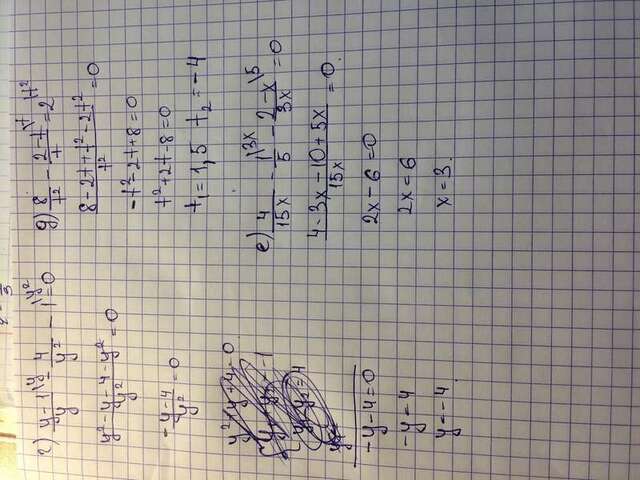 г) (y-1)/y \y - 4/y² - 1 \y² = 0
(y² - y - 4 - y²)/y² = 0
(-y-4)/y² = 0
-y-4=0
-y=4
y=-4.
д) 8/t² - (2-t)/t \t = 2 \t²
(8-2t+t²-2t²)/t² = 0
-t²-2t+8=0
t²+2t-8=0
t₁=1,5 t₂=-4
е) 4/15x - 1/5 \3x - (2-x)/3x \5 = 0
(4-3x-10+5x)/15x = 0.
2x-6=0
2x=6
x=3.